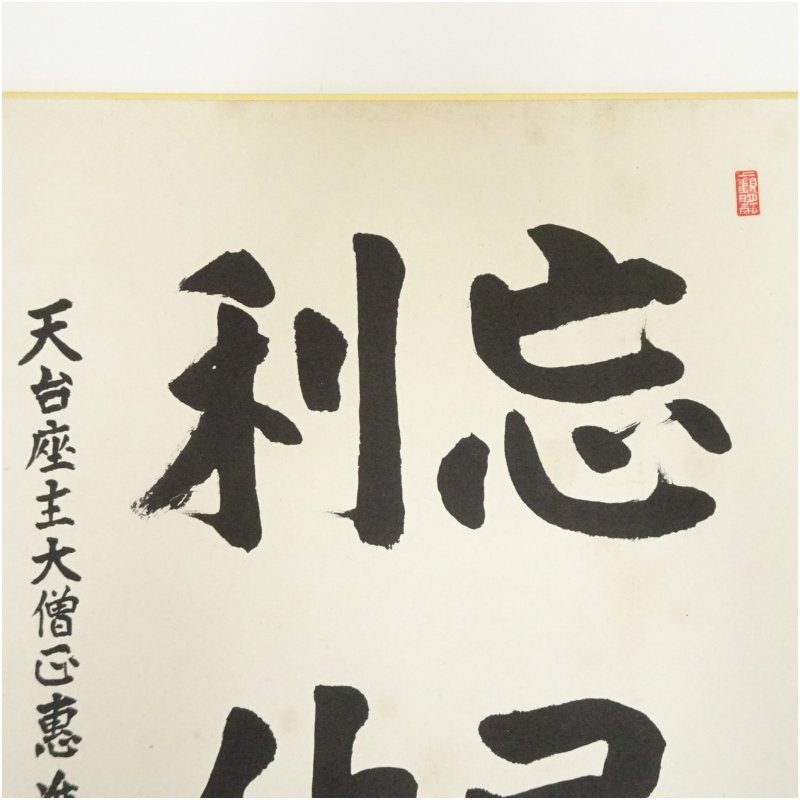 忘己
利他
天台座主大僧正惠